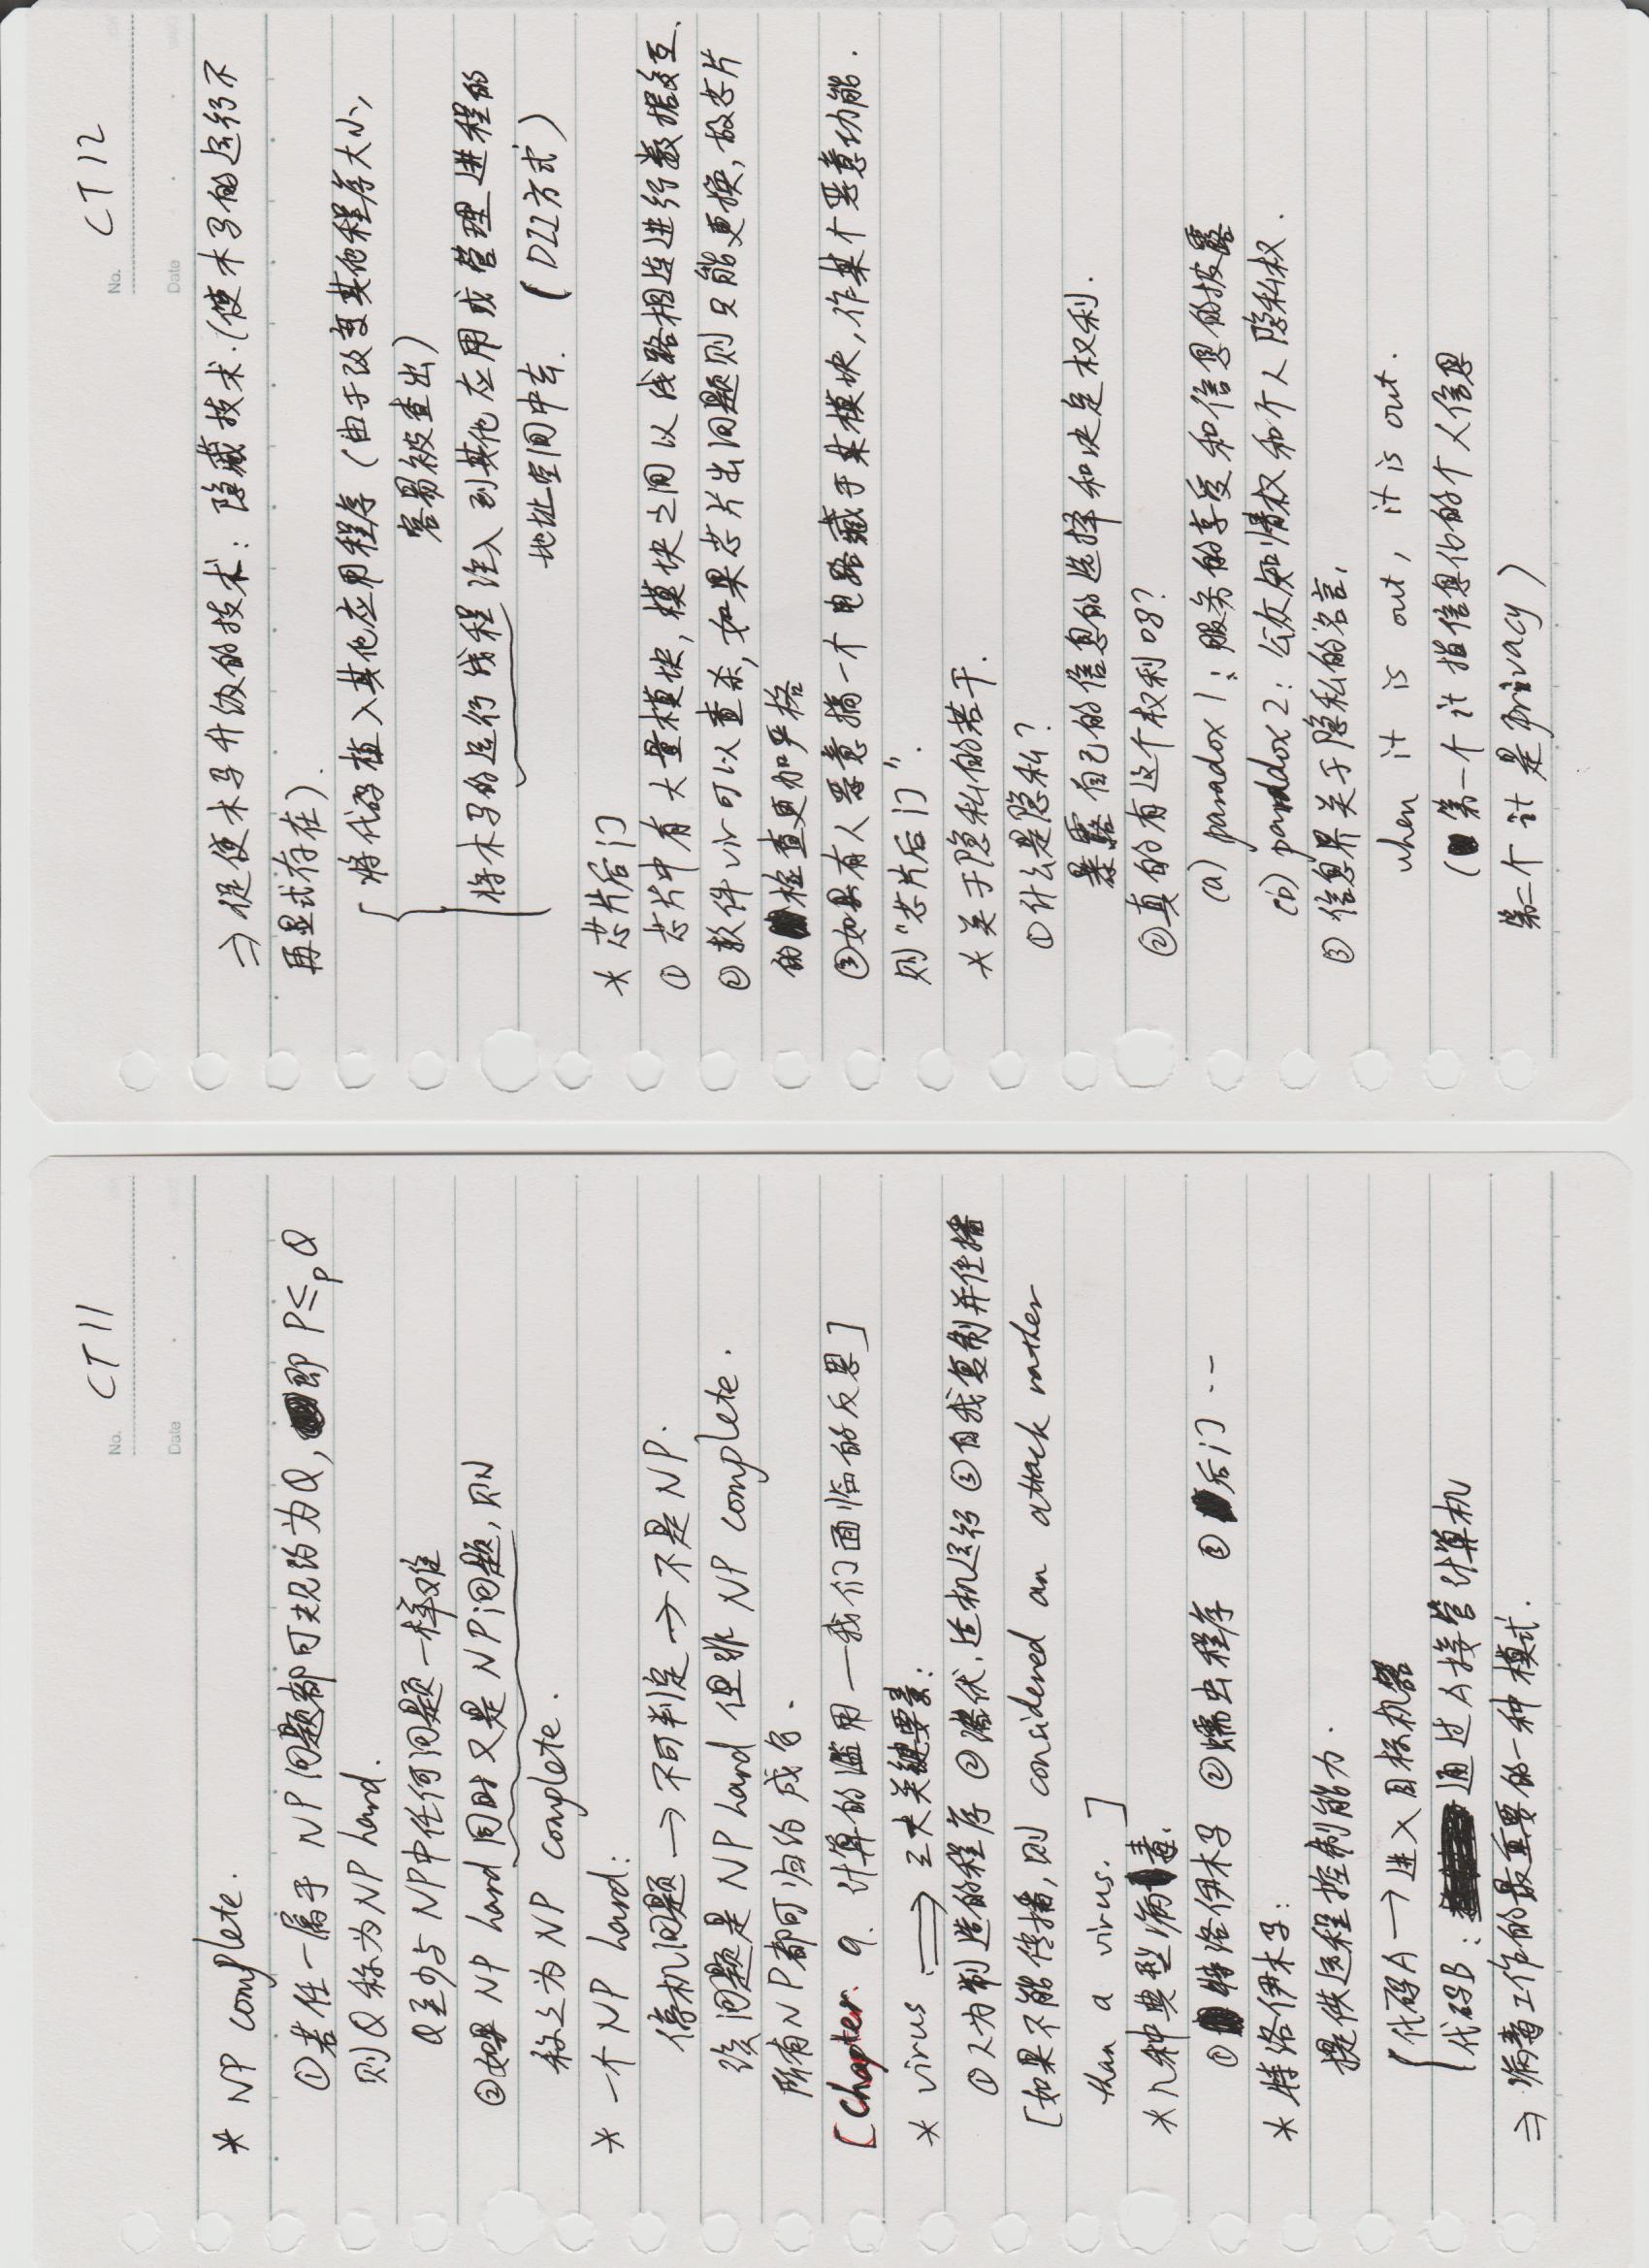 No. CT 11
Date
* NP complete.
①若任一属于 NP 问题都可规约为Q, 即 P≤pQ
则Q称为NP hard.
Q至少与NP中任何问题一样难
②如果 NP hard 同时又是 NP问题, 则
称之为NP complete.
* 一个NP hard:
停机问题 → 不可判定 → 不是NP.
该问题是 NP hard 但非 NP complete.
所有NP都可归约成它.
[Chapter 9. 计算的滥用—我们面临的反思]
* virus ⟹ 三大关键要素:
①人为制造的程序 ②潜伏,适机运行 ③自我复制并传播
[如果不能传播,则 considered an attack rather
than a virus. ]
*几种典型病毒.
① 特洛伊木马 ②蠕虫程序 ③ 后门 …
* 特洛伊木马:
提供远程控制能力.
{ 代码A → 进入目标机器
代码B: 通过A接管计算机
⇒ 病毒工作的最重要的一种模式.
No. CT 12
Date
⇒ 促使木马升级的技术: 隐藏技术.(使木马的运行不
再显式存在).
{ 将代码植入其他应用程序 (由于改变其他程序大小,
容易被查出)
将木马的运行线程注入到其他应用或管理进程的
地址空间中去. (Dll方式)
* 芯片后门
① 芯片中有大量模块, 模块之间以线路相连进行数据交互.
② 软件vir可以查杀,如果芯片出问题则只能更换,故芯片
的检查更加严格
③如果有人恶意搞一个电路藏于某模块,作某个恶意功能.
则"芯片后门".
*关于隐私的若干.
①什么是隐私?
暴露自己的信息的选择和决定权利.
②真的有这个权利吗?
(a) paradox 1: 服务的享受和信息的披露
(b) paradox 2: 公众知情权和个人隐私权.
③ 信息界关于隐私的名言,
when it is out, it is out.
( 第一个it指信息化的个人信息
第二个it是privacy)